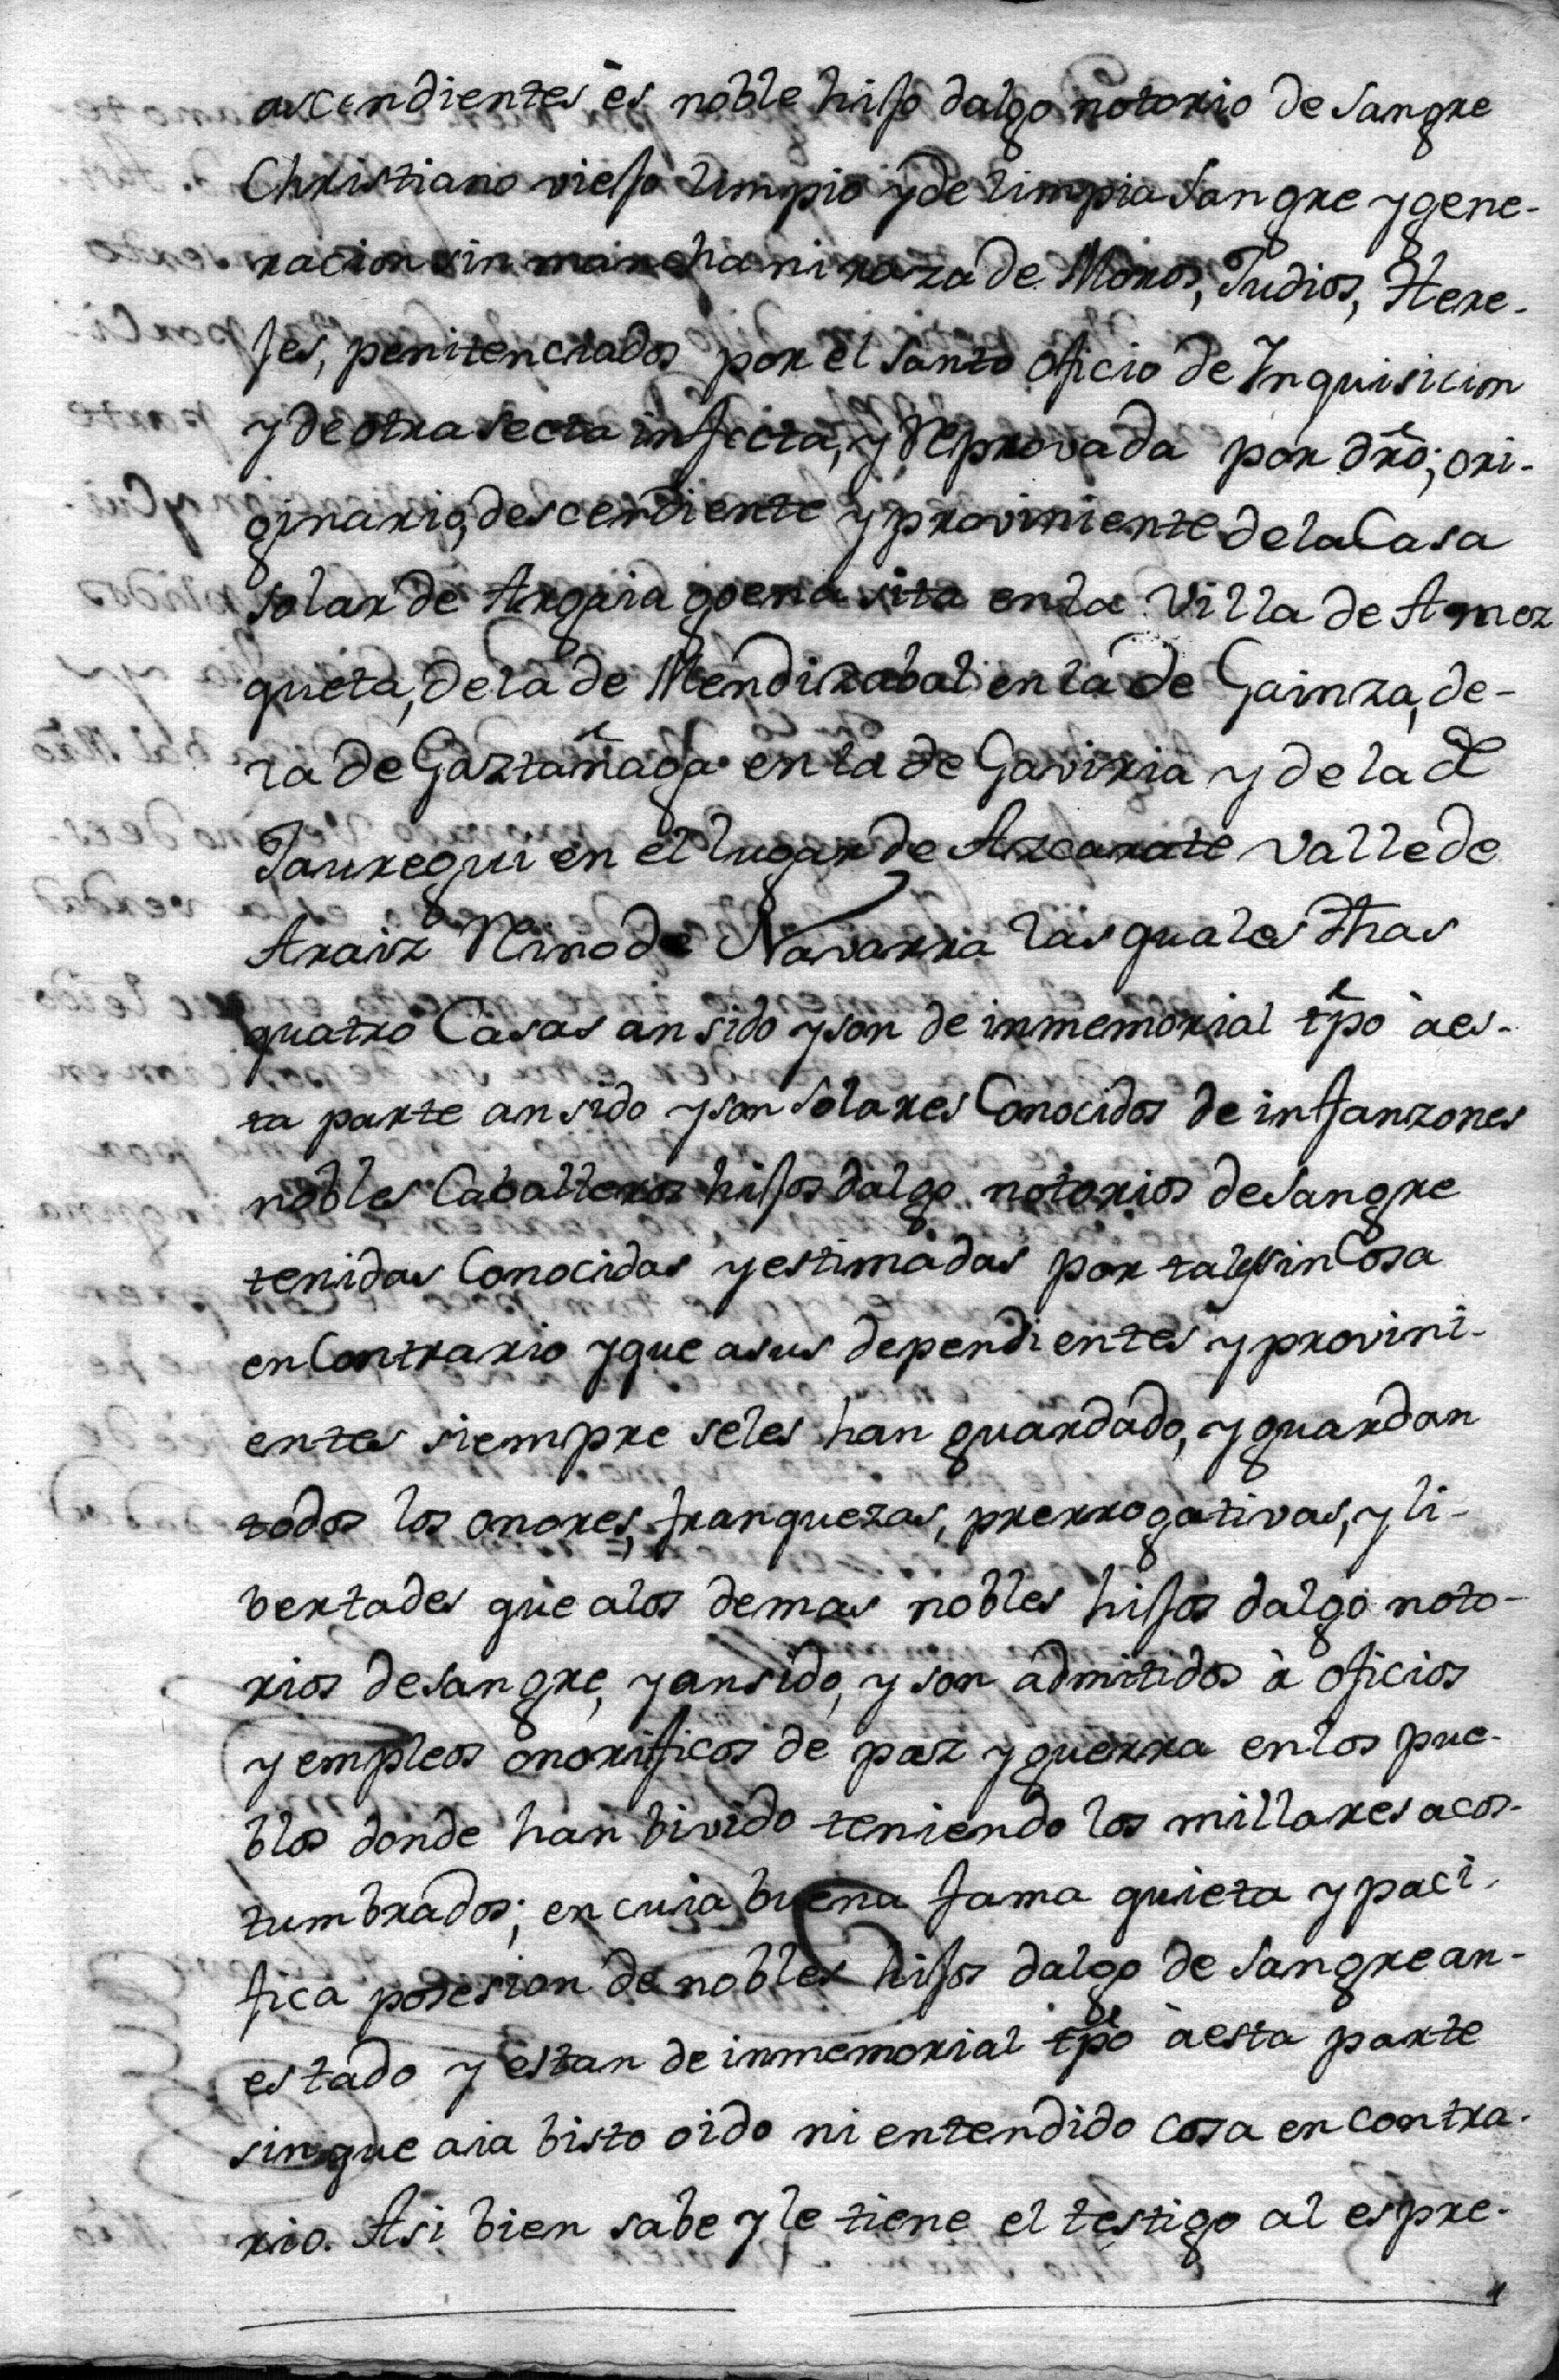 ascendientes ès noble hijo dalgo notorio de sangre
Christiano viejo limpio y de limpia sangre y gene-
racion sin mancha ni raza de Moros, Judios, Here-
jes, penitenciados por el santo oficio de Inquisicion
y de otra secta infecta, y Reprovada por dro; ori-
ginario, descendiente y proviniente de la Casa
solar de Arguiagoena sita en la Villa de Amez
queta, de la de Mendizabal en la de Gainza, de-
la de Gaztañaga en la de Gaviria y de la de
Jauregui en el lugar de Azcarate valle de
Araiz Rno de Navarra las quales dhas
quatro Casas an sido y son de inmemorial tpo à es-
ta parte an sido y son solares Conocidos de infanzones
nobles Caballeros hijos dalgo notorios de sangre
tenidas Conocidas y estimadas por tales sin Cosa
en Contrario y que a sus dependientes y provini-
entes siempre se les han guardado, y guardan
todos los onores, franquezas, prerrogativas, y li-
bertades que a los demas nobles hijos dalgo noto-
rios de sangre, y an sido, y son admitidos à oficios
y empleos onorificos de paz y guerra en los pue-
blos donde han bivido teniendo los millares acos-
tumbrados; en cuia buena fama quieta y paci-
fica posesion de nobles hijos dalgo de sangre an-
estado y estan de inmemorial tpo à esta parte
sin que aia bisto oido ni entendido cosa en contra-
rio. Asi bien sabe y le tiene el testigo al espre-